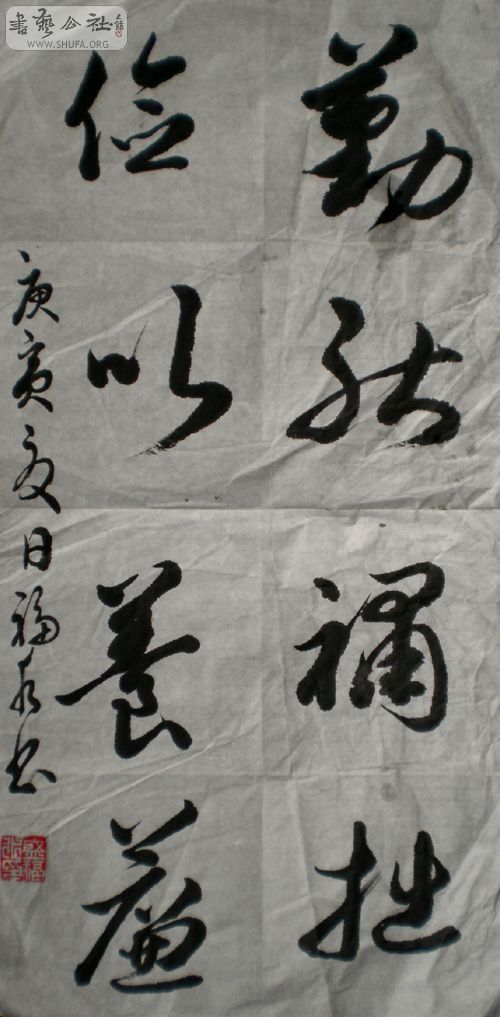 勤能補拙
俭以養廉
庚寅夏日福泉书
書藝公社
WWW.SHUFA.ORG